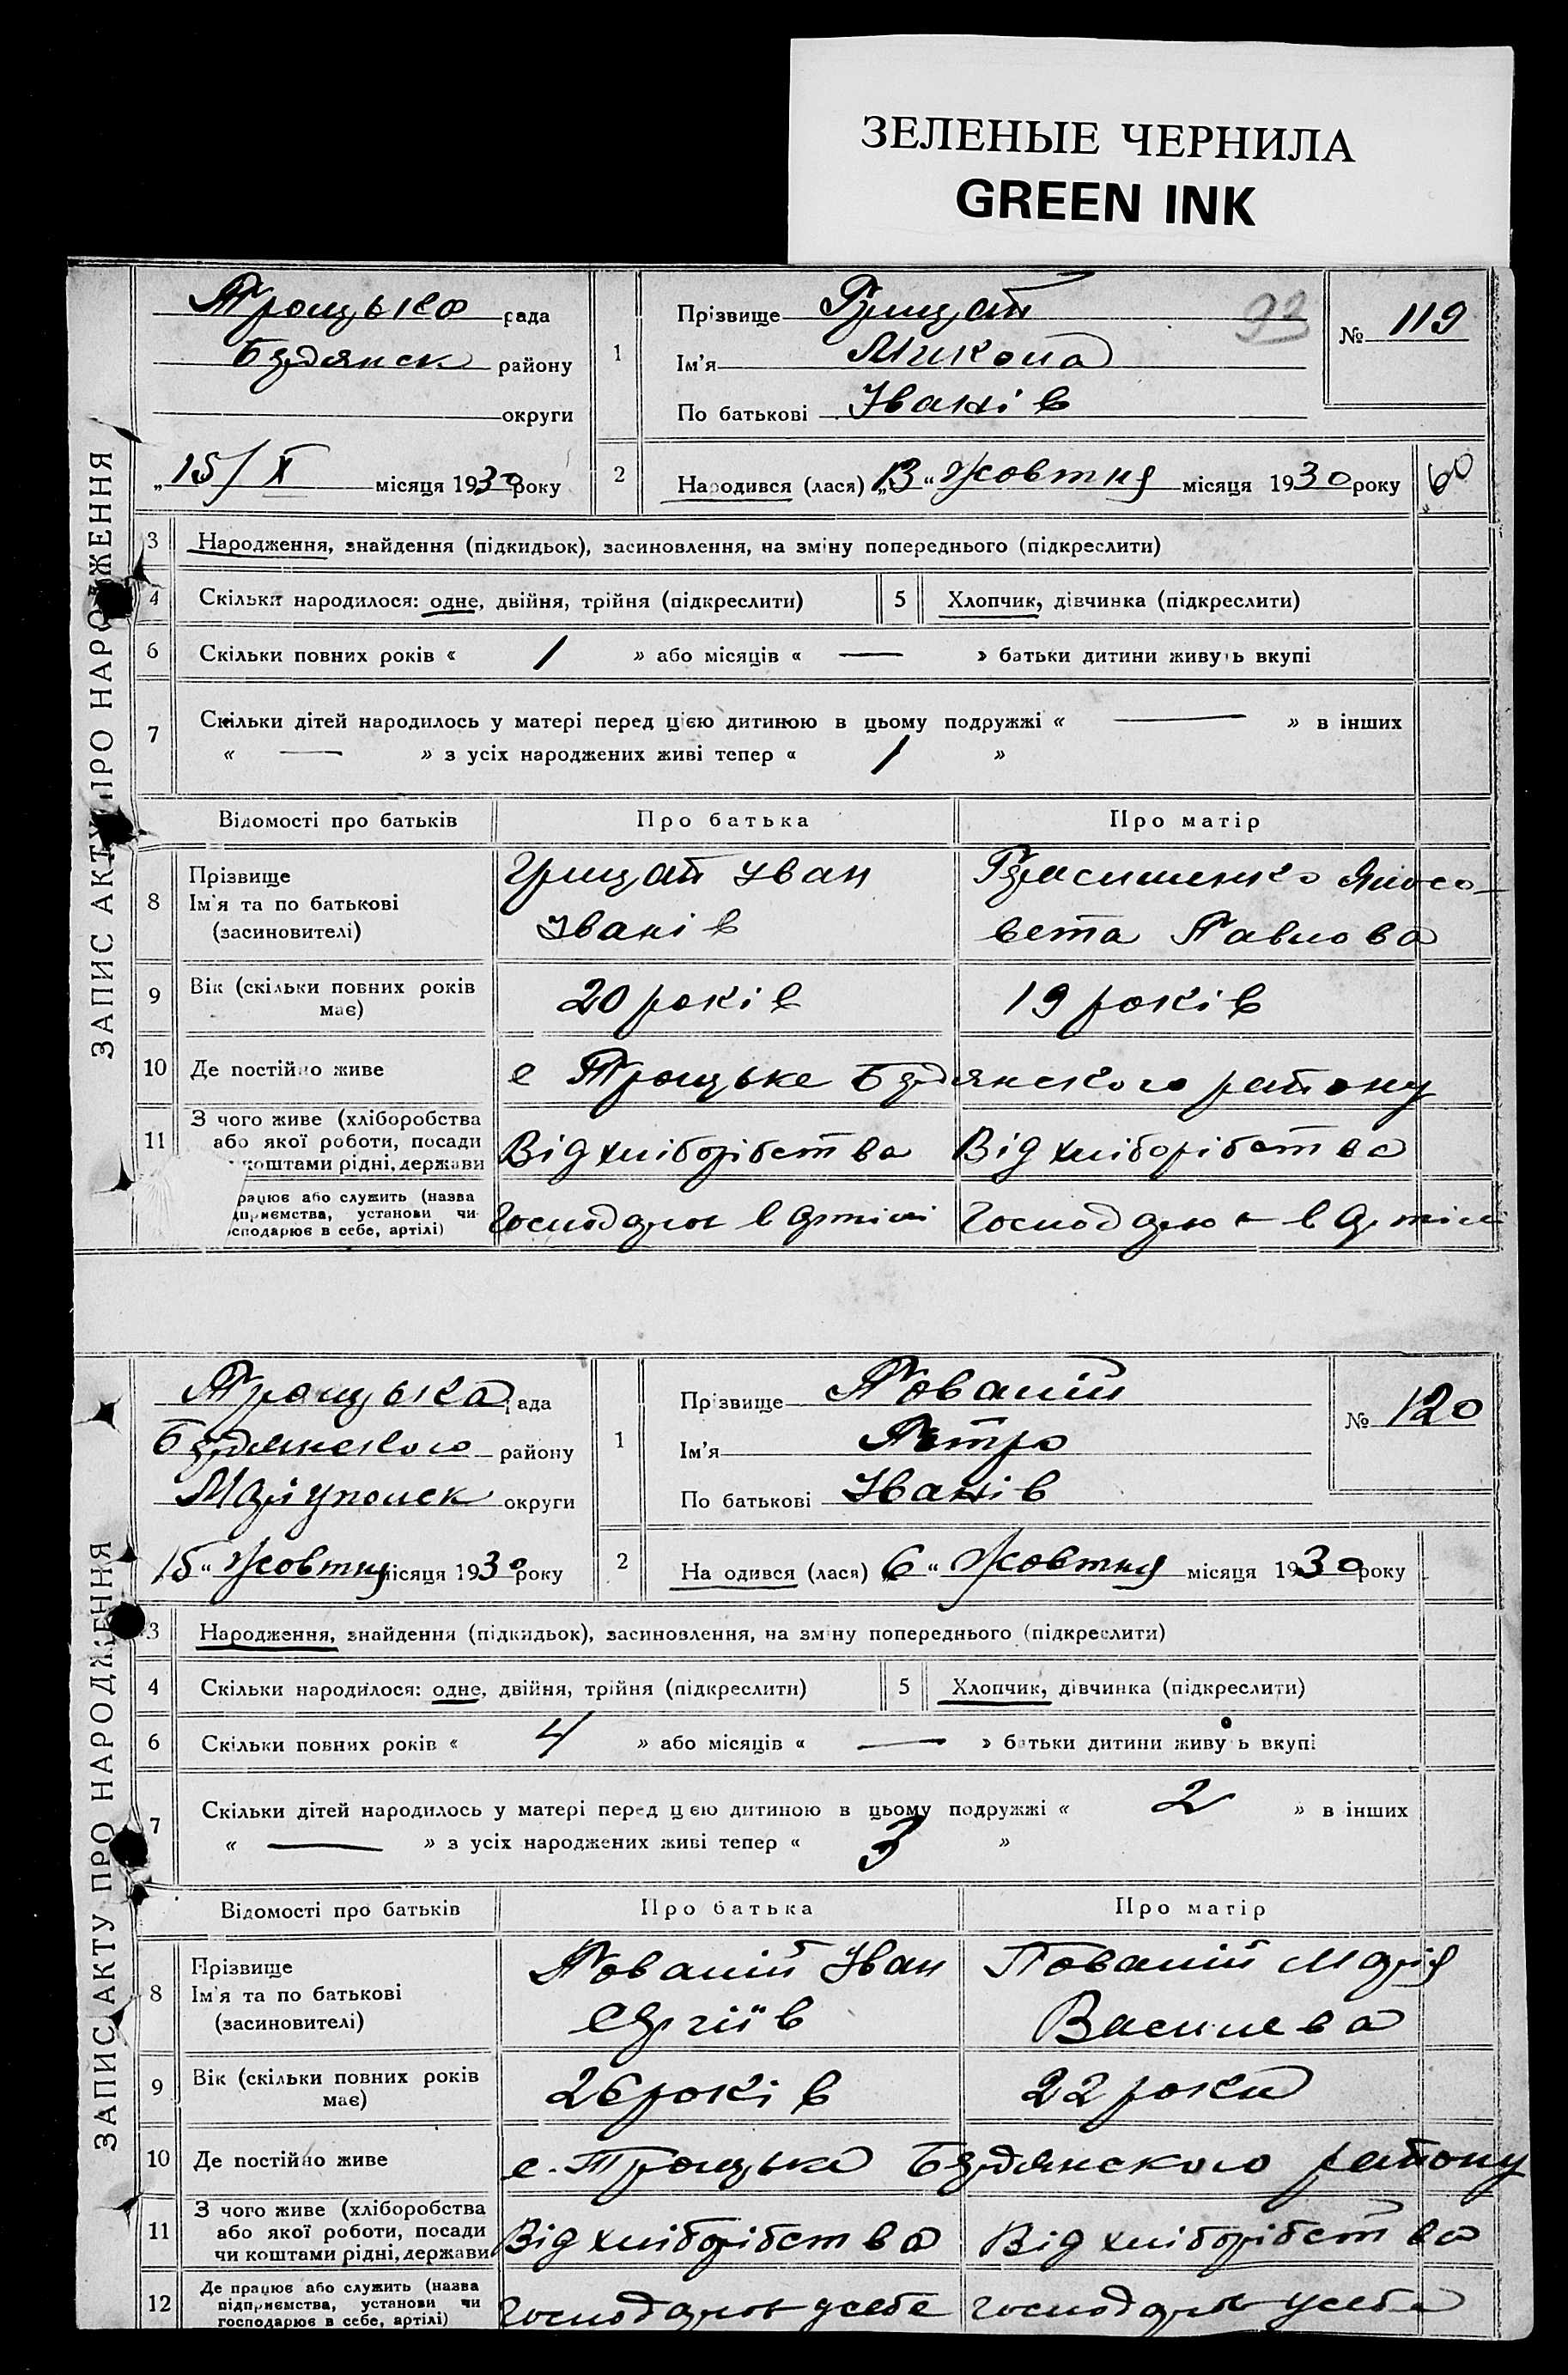 ЗЕЛЕНЫЕ ЧЕРНИЛА
GREEN INK
ЗАПИС АКТУ ПРО НАРОДЖЕННЯ
Троцька рада
Бердянск району
округи
„15/X місяця 1930 року
1
Прізвище Грицай
Ім'я Микола
По батькові Іванів
93
№ 119
2
Народився (лася) „13“ Жовтня місяця 1930 року
60
3 Народження, знайдення (підкидьок), засиновлення, на зміну попереднього (підкреслити)
4 Скільки народилося: одне, двійня, трійня (підкреслити) 5 Хлопчик, дівчинка (підкреслити)
6 Скільки повних років « 1 » або місяців « — » батьки дитини живуть вкупі
7 Скільки дітей народилось у матері перед цією дитиною в цьому подружжі « — » в інших
« — » з усіх народжених живі тепер « 1 »
Відомості про батьків Про батька Про матір
8 Прізвище
Ім'я та по батькові
(засиновителі)
Грицай Іван
Іванів
Герасименко Ялисо-
вета Павлова
9 Вік (скільки повних років
має)
20 років
19 років
10 Де постійно живе
с Троцьке Бердянского району
11 З чого живе (хліборобства
або якої роботи, посади
коштами рідні, держави
Від хліборібства
Від хліборібства
рацює або служить (назва
дприємства, установи чи
сподарює в себе, артілі)
Господарює в Артілі
Господарює в Артілі
ЗАПИС АКТУ ПРО НАРОДЖЕННЯ
Троцька рада
Бердянского району
Маріуполск округи
15“ Жовтня місяця 1930 року
1
Прізвище Повалій
Ім'я Петро
По батькові Іванів
№ 120
2
На одився (лася) „6“ Жовтня місяця 1930 року
3 Народження, знайдення (підкидьок), засиновлення, на зміну попереднього (підкреслити)
4 Скільки народилося: одне, двійня, трійня (підкреслити) 5 Хлопчик, дівчинка (підкреслити)
6 Скільки повних років « 4 » або місяців « — » батьки дитини живуть вкупі
7 Скільки дітей народилось у матері перед цією дитиною в цьому подружжі « 2 » в інших
« — » з усіх народжених живі тепер « 3 »
Відомості про батьків Про батька Про матір
8 Прізвище
Ім'я та по батькові
(засиновителі)
Повалій Іван
Сергіїв
Повалій Марія
Василева
9 Вік (скільки повних років
має)
26 років
22 роки
10 Де постійно живе
с. Троцька Бердянского району
11 З чого живе (хліборобства
або якої роботи, посади
чи коштами рідні, держави
Від хліборібства
Від хліборібства
12 Де працює або служить (назва
підприємства, установи чи
господарює в себе, артілі)
Господарює усебе
Господарює усебе